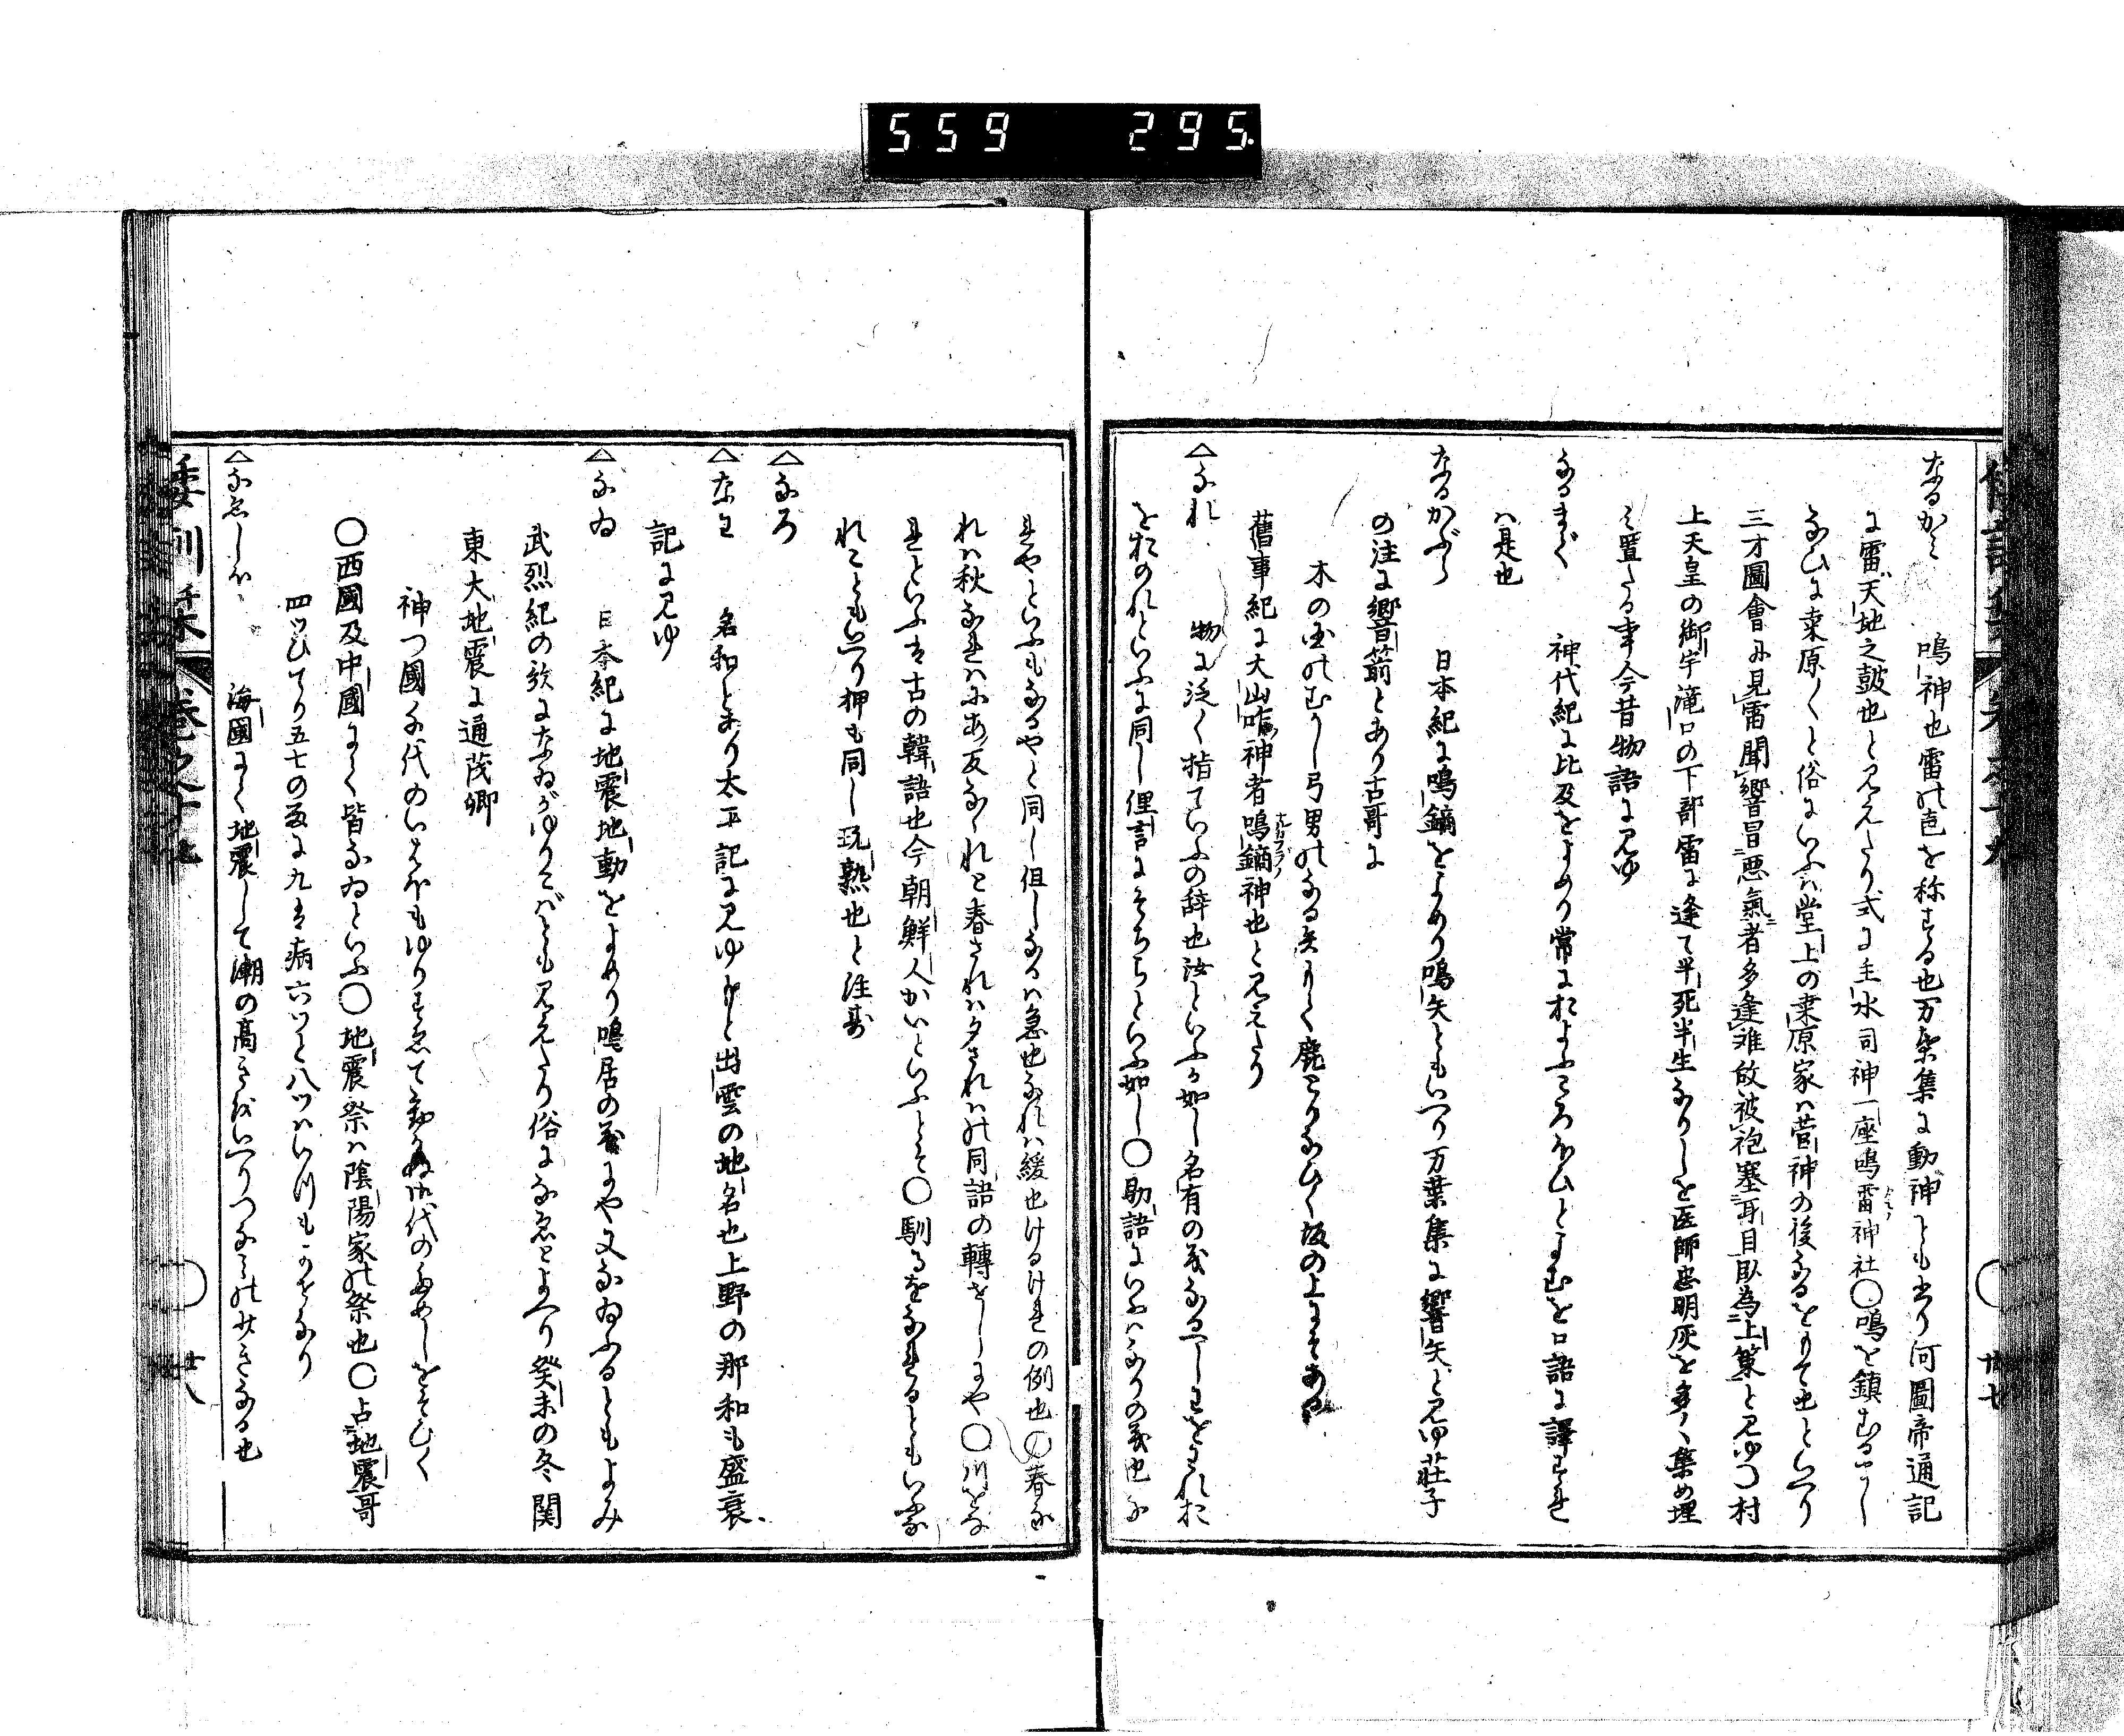 559 295.
なるかみ 鳴神也雷の臣を称する也万葉集に動神とも書り河圖帝通記
に雷天地之鼓也と見えたり式に主水司神一座鳴雷神社〇鳴を鎮むるかし
なひに桒原〱と俗にいふハ堂上の桒原家ハ菅神の後なるをもて也といへり
三才圖會に見雷聞響冒悪氣者多逢難故被袍塞耳目臥為上策と見ゆ〇村
上天皇の御宇滝口の下部雷に逢て半死半生なりしを医師忠明灰を多く集め埋
み置たる事今昔物語に見ゆ
なるまで 神代紀に比及をよめり常におよふころほひとよむを口語に譯すれ
ハ是也
なるかぶら 日本紀に鳴鏑をよめり鳴矢ともいへり万葉集に響矢と見ゆ荘子
の注に響箭とあり古哥に
木の国のむかし弓男のなる矢もて鹿とりなひく坂の上にそある
舊事紀に大山咋神者鳴鏑神也と見えたり
△なれ 物に泛く指ていふの辞也汝といふか如し名有の義なるへしわをわれお
をおのれといふに同し俚言にそちらといふ如し〇助語にいふハなりの義也な
れやといふもなるやと同し但しなるハ急也なれハ緩也けるけれの例也〇春な
れハ秋なれハにあ反なゝれと春されハ夕されハの同語の轉せしにや〇川をな
れといふは古の韓語也今朝鮮人かいといふとそ〇馴るをなれるともいふな
れこともいへり狎も同し玩熟也と注す
△なろ
△なわ 名和とあり太平記に見ゆもと出雲の地名也上野の那和も盛衰
記に見ゆ
△なゐ 日本紀に地震地動をよめり鳴居の義にや又なゐふるともよみ
武烈紀の歌になゐがゆりこばとも見えたり俗になゑとよへり癸未の冬関
東大地震に通茂卿
神つ國千代のいはほもゆりすゑて動かぬ御代のためしをそひく
〇西國及中國にて皆なゐといふ〇地震祭ハ陰陽家の祭也〇占地震哥
四ツひてり五七の雨に九は病六ツと八ツハいつも風となり
△なゑしほ 海國にて地震して潮の高きをいへりつなみの小きなる也
倭訓栞 巻之十九 廿七
倭訓栞 巻之十九 廿八